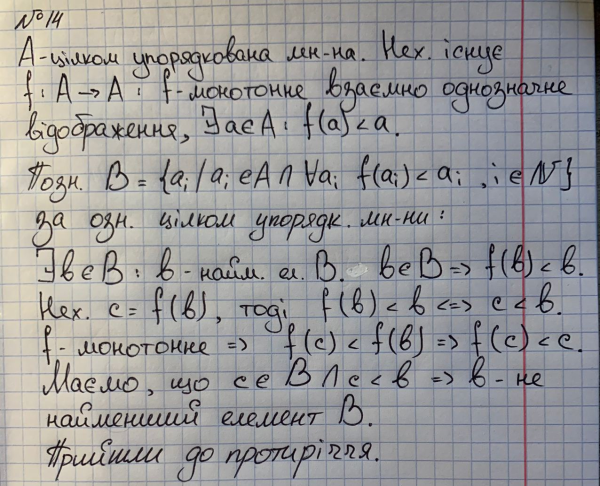 №14
А-цілком упорядкована мн-на. Нех. існує
f: A → A : f-монотонне взаємно однозначне
відображення, ∃a∈A: f(a)<a.
Позн. B = {aᵢ / aᵢ ∈A ∩ ∀aᵢ f(aᵢ) < aᵢ , i ∈ N}
за озн. цілком упорядк. мн-ни:
∃b∈B : b-найм. ел. B. b∈B => f(b) < b.
Нех. c = f(b), тоді f(b) < b <=> c < b.
f-монотонне => f(c) < f(b) => f(c) < c.
Маємо, що c∈B ∩ c < b => b-не
найменший елемент B.
Прийшли до протиріччя.